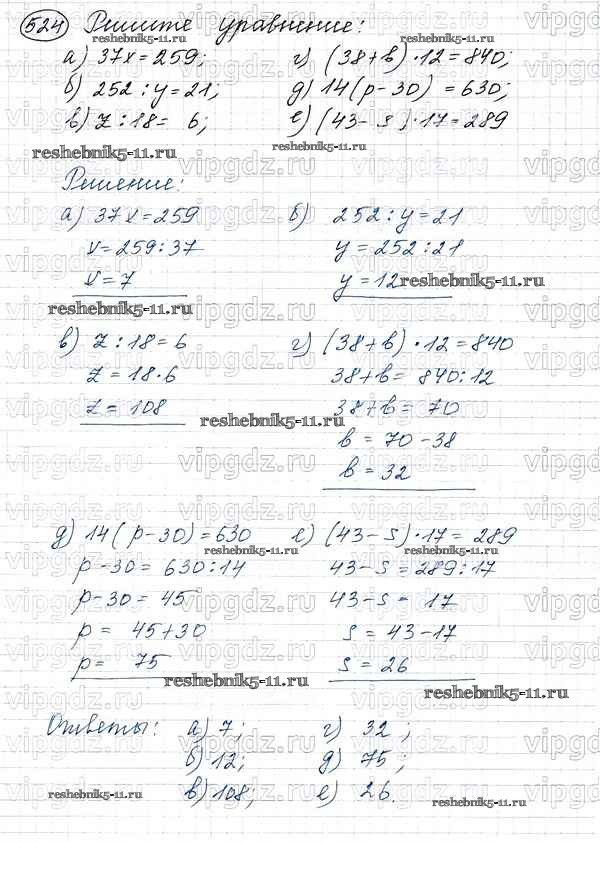 524 Решите уравнение:
reshebnik5-11.ru
а) 37x = 259; г) (38 + b) · 12 = 840;
б) 252 : y = 21; д) 14(p - 30) = 630;
в) z : 18 = 6; е) (43 - s) · 17 = 289
reshebnik5-11.ru reshebnik5-11.ru
vipgdz.ru vipgdz.ru vipgdz.ru
Решение:
а) 37x = 259 б) 252 : y = 21
x = 259 : 37 y = 252 : 21
x = 7 y = 12
reshebnik5-11.ru reshebnik5-11.ru
в) z : 18 = 6 г) (38 + b) · 12 = 840
z = 18 · 6 38 + b = 840 : 12
z = 108 38 + b = 70
reshebnik5-11.ru
b = 70 - 38
b = 32
д) 14(p - 30) = 630 е) (43 - s) · 17 = 289
reshebnik5-11.ru reshebnik5-11.ru
p - 30 = 630 : 14 43 - s = 289 : 17
p - 30 = 45 43 - s = 17
p = 45 + 30 s = 43 - 17
p = 75 s = 26
reshebnik5-11.ru reshebnik5-11.ru
Ответы: а) 7; г) 32;
б) 12; д) 75;
в) 108; е) 26.
reshebnik5-11.ru reshebnik5-11.ru